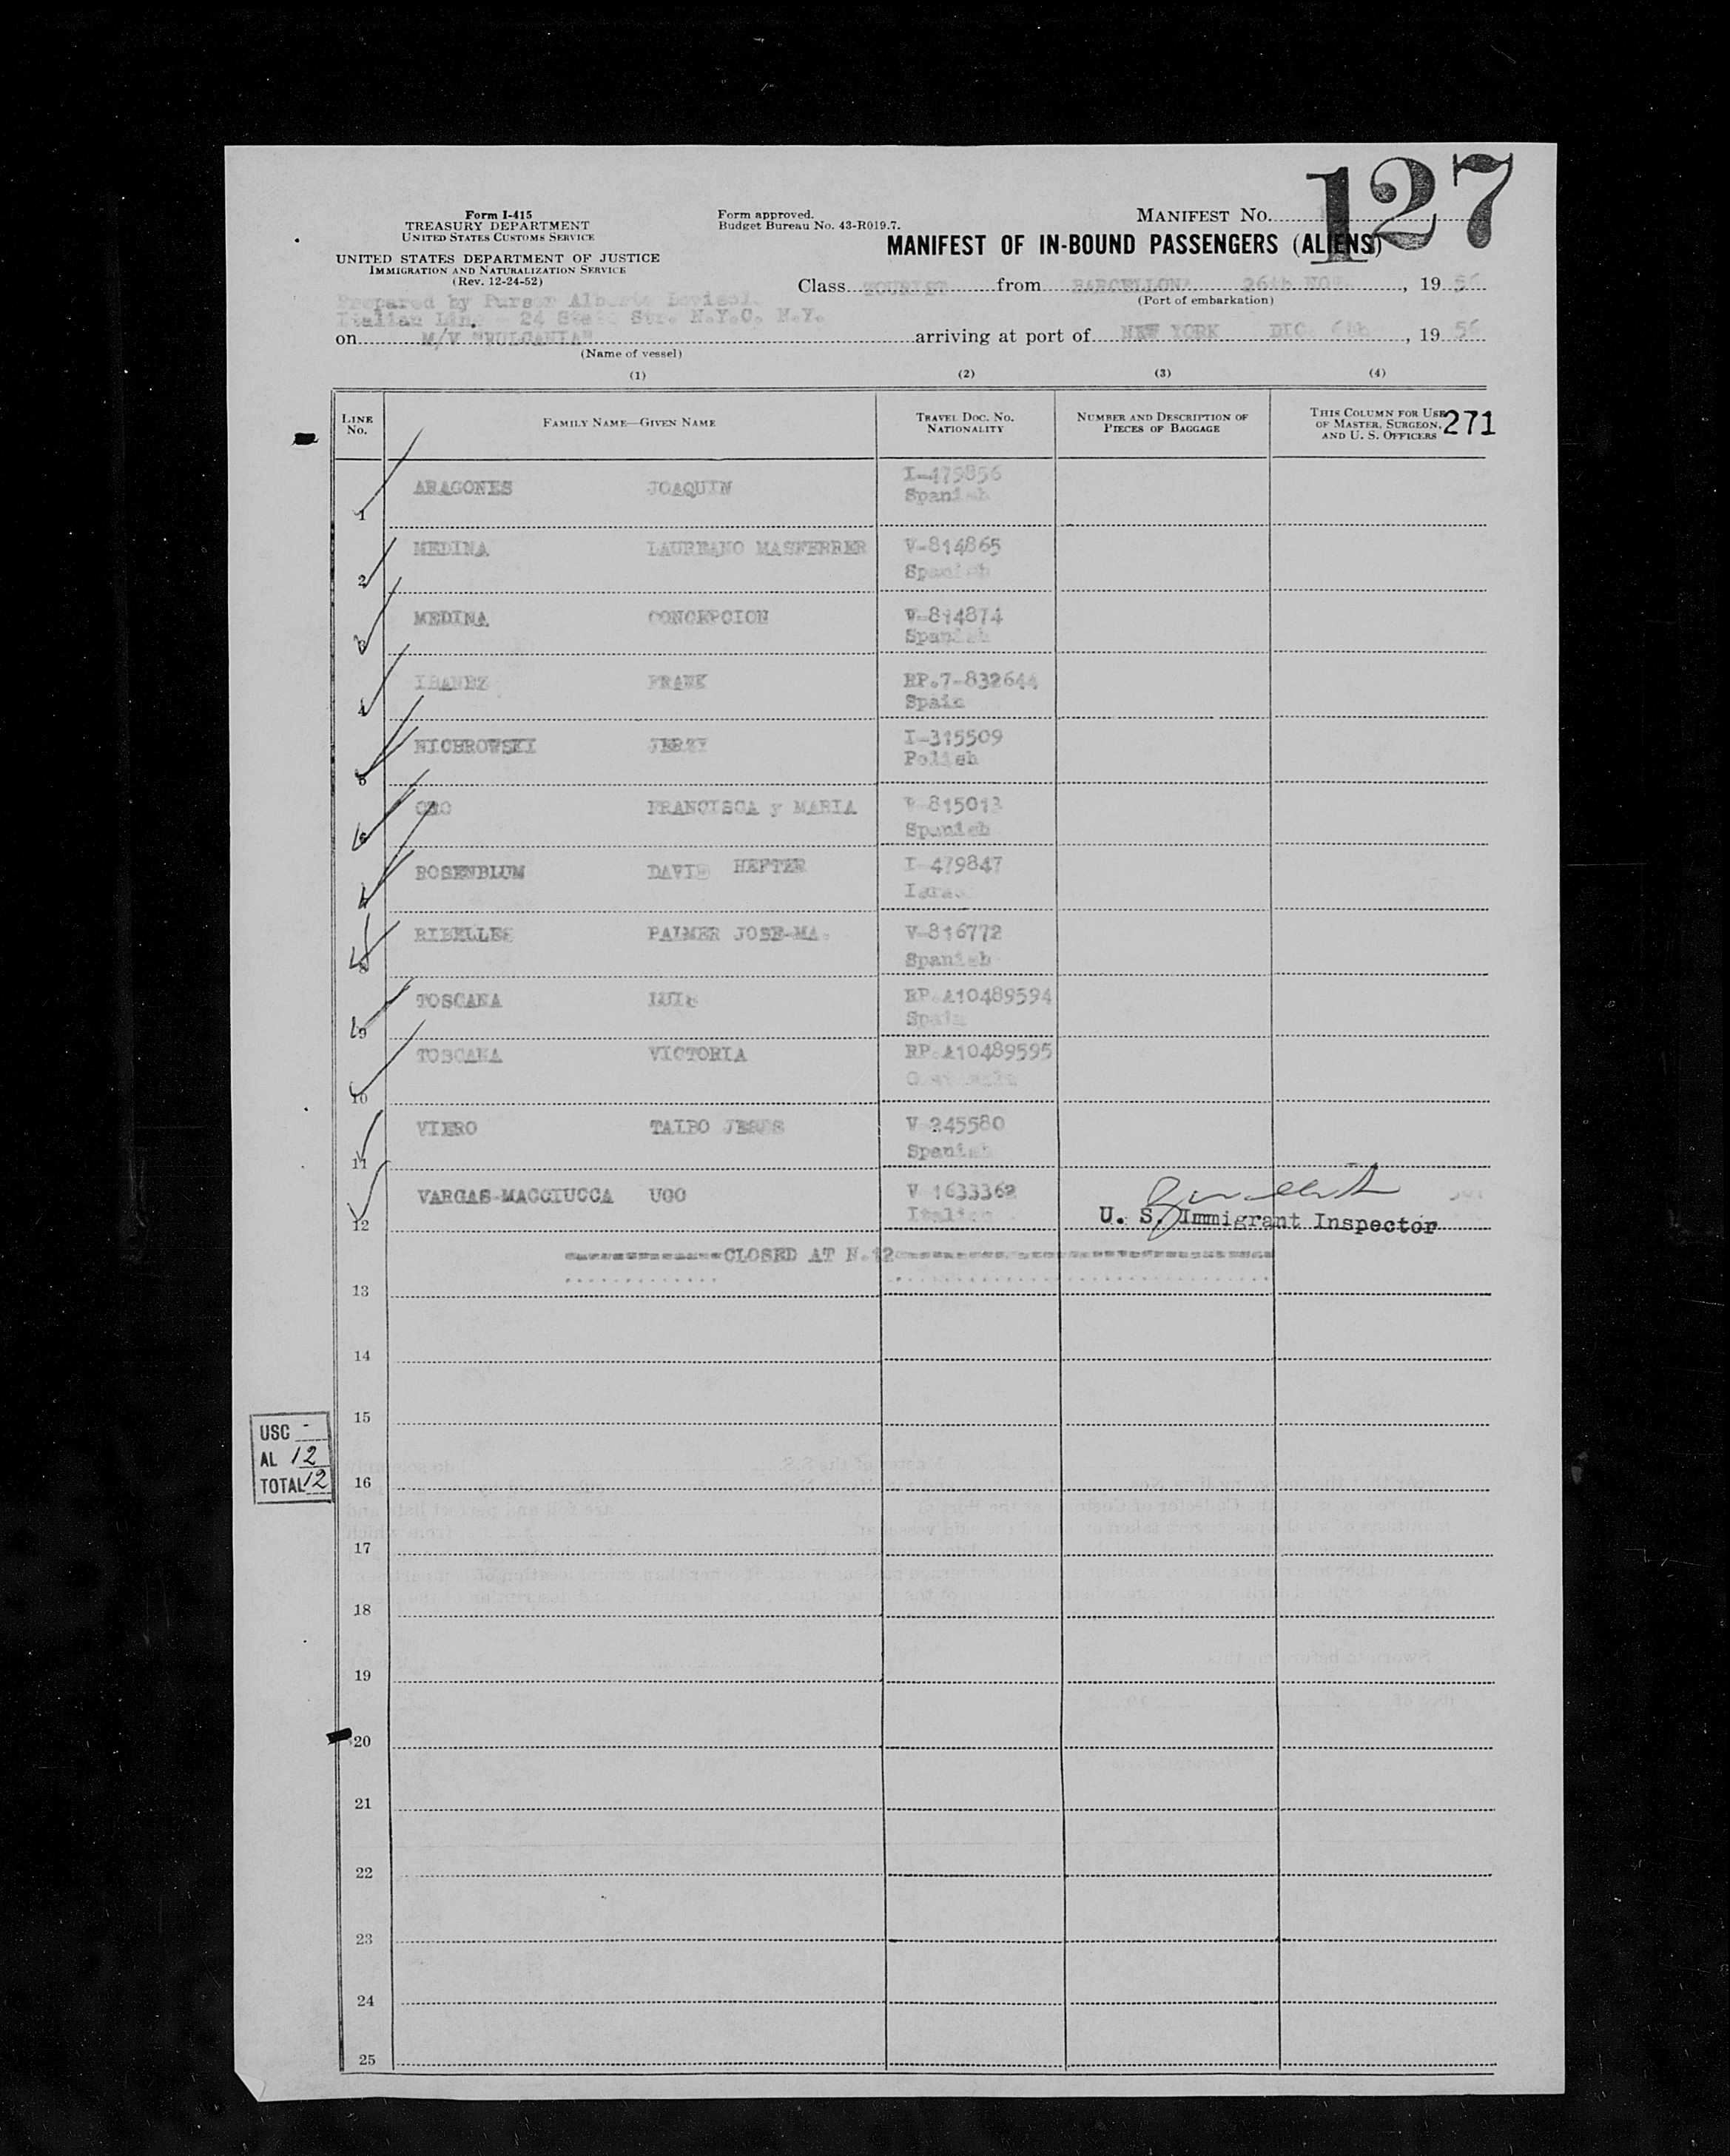 127
Form I-415
TREASURY DEPARTMENT
UNITED STATES CUSTOMS SERVICE
UNITED STATES DEPARTMENT OF JUSTICE
IMMIGRATION AND NATURALIZATION SERVICE
(Rev. 12-24-52)
Form approved.
Budget Bureau No. 43-R019.7.
MANIFEST NO.
MANIFEST OF IN-BOUND PASSENGERS (ALIENS)
Class TOURIST from BARCELLONA 26th NOV. , 19 56
(Port of embarkation)
Prepared by Purser Alberto
Italian Line 24 State Str. N.Y.C. N.Y.
on M/V "VULCANIA" arriving at port of NEW YORK DIC. 6th , 19 56
(Name of vessel)
(1) (2) (3) (4)
LINE No. FAMILY NAME—GIVEN NAME TRAVEL DOC. NO. NATIONALITY NUMBER AND DESCRIPTION OF PIECES OF BAGGAGE THIS COLUMN FOR USE OF MASTER, SURGEON, AND U. S. OFFICERS 271
1 ARAGONES JOAQUIN I-479856
Spanish
2 MEDINA LAUREANO MASFERRER V-814865
Spanish
3 MEDINA CONCEPCION V-814874
Spanish
4 IBANEZ FRANK RP.7-832644
Spain
5 NICHROWSKI JERZY I-315509
Polish
6 ORO FRANCISCA y MARIA V-815013
Spanish
7 ROSENBLUM DAVID HEFTER I-479847
Israel
8 RIBELLES PALMER JOSE-MA. V-816772
Spanish
9 TOSCANA LUIS RP.A10489594
Spain
10 TOSCANA VICTORIA RP.A10489595
11 VIERO TALBO JESUS V-245580
Spanish
12 VARGAS-MACCIUCCA UGO V 1633362
Italian
U. S. Immigrant Inspector
CLOSED AT N.12
13
14
15
USC -
AL 12
TOTAL 12
16
17
18
19
20
21
22
23
24
25